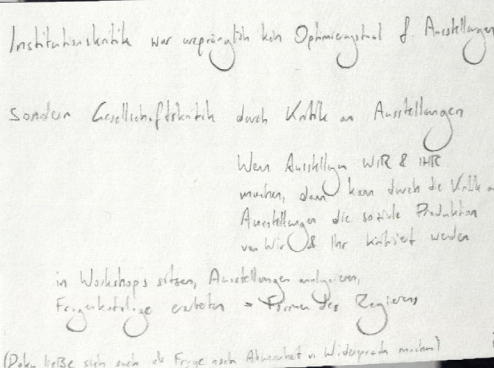 Institutionskritik war ursprünglich kein Optimierungstool f. Ausstellungen
sondern Gesellschaftskritik durch Kritik an Ausstellungen
Wenn Ausstellungen WIR & IHR
machen, dann kann durch die Kritik an
Ausstellungen die soziale Produktion
von Wir & Ihr kritisiert werden
in Workshops sitzen, Ausstellungen analysieren,
Fragenkataloge erarbeiten = Formen des Regierens
(Doku ließe sich auch als Frage nach Abwesenheit v. Widerspruch machen)